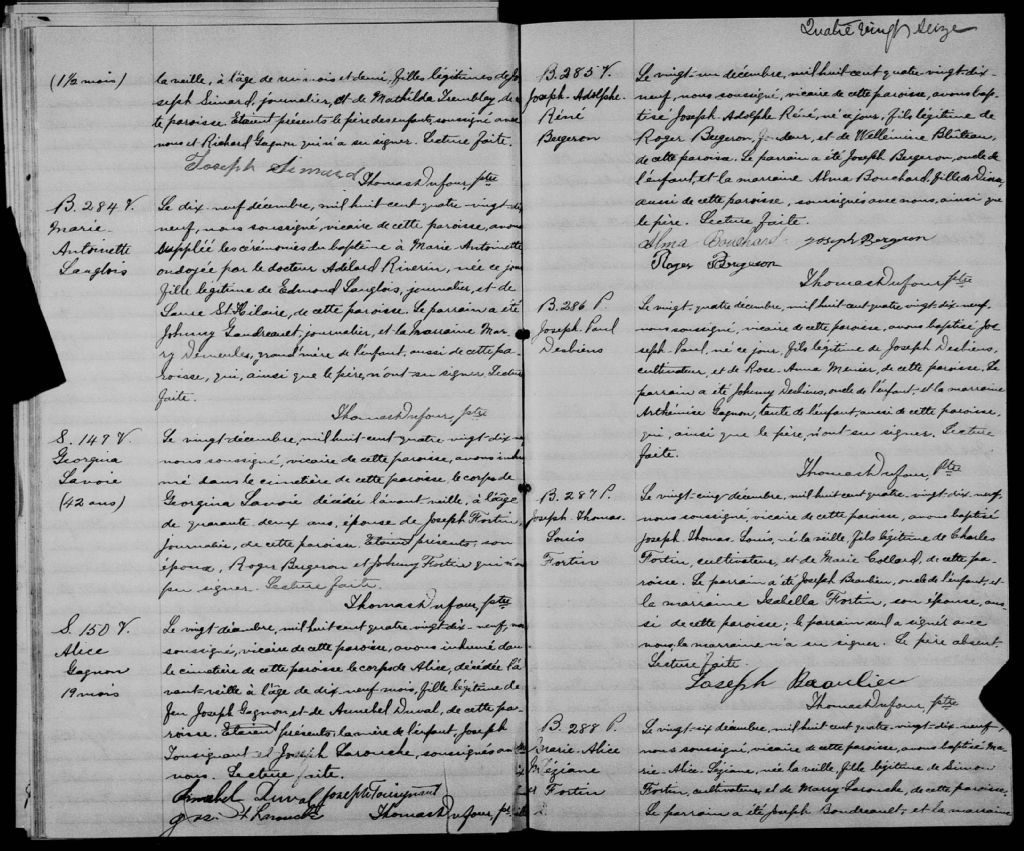 (1½ mois)
la veille, à l'âge de un mois et demi, filles légitimes de Jo
seph Simard, journalier, et de Mathilda Tremblay, de
te paroisse. Étaient présents le père des enfants, soussigné avec
nous et Richard Gagnon qui n'a su signer. Lecture faite.
Joseph Simard
Thomas Dufour, ptre
B. 284 V.
Marie-
Antoinette
Langlois
Le dix-neuf décembre, mil huit cent quatre-vingt-dix
neuf, nous soussigné, vicaire de cette paroisse, avons
suppléé les cérémonies du baptême à Marie Antoinette
ondoyée par le docteur Adélard Riverin, née ce jour
fille légitime de Edmond Langlois, journalier, et de
Laure St-Hilaire, de cette paroisse. Le parrain a été
Johnny Gaudreault, journalier, et la marraine Mar
y Demeules, grand'mère de l'enfant, aussi de cette pa-
roisse, qui, ainsi que le père, n'ont su signer. Lecture
faite.
Thomas Dufour, ptre
S. 149 V.
Georgina
Savoie
(42 ans)
Le vingt décembre, mil huit cent quatre-vingt-dix n
nous soussigné, vicaire de cette paroisse, avons inhu
mé dans le cimetière de cette paroisse le corps de
Georgina Savoie décédée l'avant-veille, à l'âge
de quarante deux ans, épouse de Joseph Fortin,
journalier, de cette paroisse. Étaient présents, son
époux, Roger Bergeron et Johnny Fortin qui n'on
pu signer. Lecture faite.
Thomas Dufour, ptre
S. 150 V.
Alice
Gagnon
19 mois
Le vingt décembre, mil huit cent quatre-vingt-dix-neuf, no
soussigné, vicaire de cette paroisse, avons inhumé dan
le cimetière de cette paroisse le corps de Alice, décédée l'a
vant-veille à l'âge de dix-neuf mois, fille légitime de
feu Joseph Gagnon et de Annebel Duval, de cette pa-
roisse. Étaient présents la mère de l'enfant, Joseph
Tousignant et Joseph Larouche, soussignés av
nous. Lecture faite.
Annebel Duval Joseph Tousignant
Larouche Thomas Dufour, ptre
Quatre vingt seize
B. 285 V.
Joseph-Adolphe-
Réné
Bergeron
Le vingt-un décembre, mil huit cent quatre-vingt-dix-
neuf, nous soussigné, vicaire de cette paroisse, avons bap-
tisé Joseph Adolphe Réné, né ce jour, fils légitime de
Roger Bergeron, et de Wellémine Blûteau,
de cette paroisse. Le parrain a été Joseph Bergeron, oncle de
l'enfant, et la marraine Alma Bouchard, fille de
aussi de cette paroisse, soussignés avec nous, ainsi que
le père. Lecture faite.
Alma Bouchard Joseph Bergeron
Roger Bergeron
Thomas Dufour ptre
B. 286 P.
Joseph-Paul
Desbiens
Le vingt-quatre décembre, mil huit cent quatre-vingt-dix-neuf,
nous soussigné, vicaire de cette paroisse, avons baptisé Jos
seph-Paul, né ce jour, fils légitime de Joseph Desbiens,
cultivateur, et de Rose-Anna Menier, de cette paroisse. Le
parrain a été Johnny Desbiens, oncle de l'enfant, et la marraine
Arthémise Gagnon, tante de l'enfant, aussi de cette paroisse,
qui, ainsi que le père, n'ont su signer. Lecture
faite.
Thomas Dufour, ptre
B. 287 P.
Joseph-Thomas-
Louis
Fortin
Le vingt-cinq décembre, mil huit cent quatre-vingt-dix-neuf,
nous soussigné, vicaire de cette paroisse, avons baptisé
Joseph-Thomas-Louis, né la veille, fils légitime de Charles
Fortin, cultivateur, et de Marie Collard, de cette pa-
roisse. Le parrain a été Joseph Beaulieu, oncle de l'enfant, et
la marraine Isabella Fortin, son épouse, aus-
si de cette paroisse; le parrain seul a signé avec
nous, la marraine n'a su signer. Le père absent.
Lecture faite.
Joseph Beaulieu
Thomas Dufour, ptre
B. 288 P.
Marie-Alice
Léziane
Fortin
Le vingt-six décembre, mil huit cent quatre-vingt-dix-neuf,
nous soussigné, vicaire de cette paroisse, avons baptisé Ma
rie-Alice-Léziane, née la veille, fille légitime de Simon
Fortin, cultivateur, et de Mary Larouche, de cette paroisse.
Le parrain a été Joseph Boudreault, et la marraine